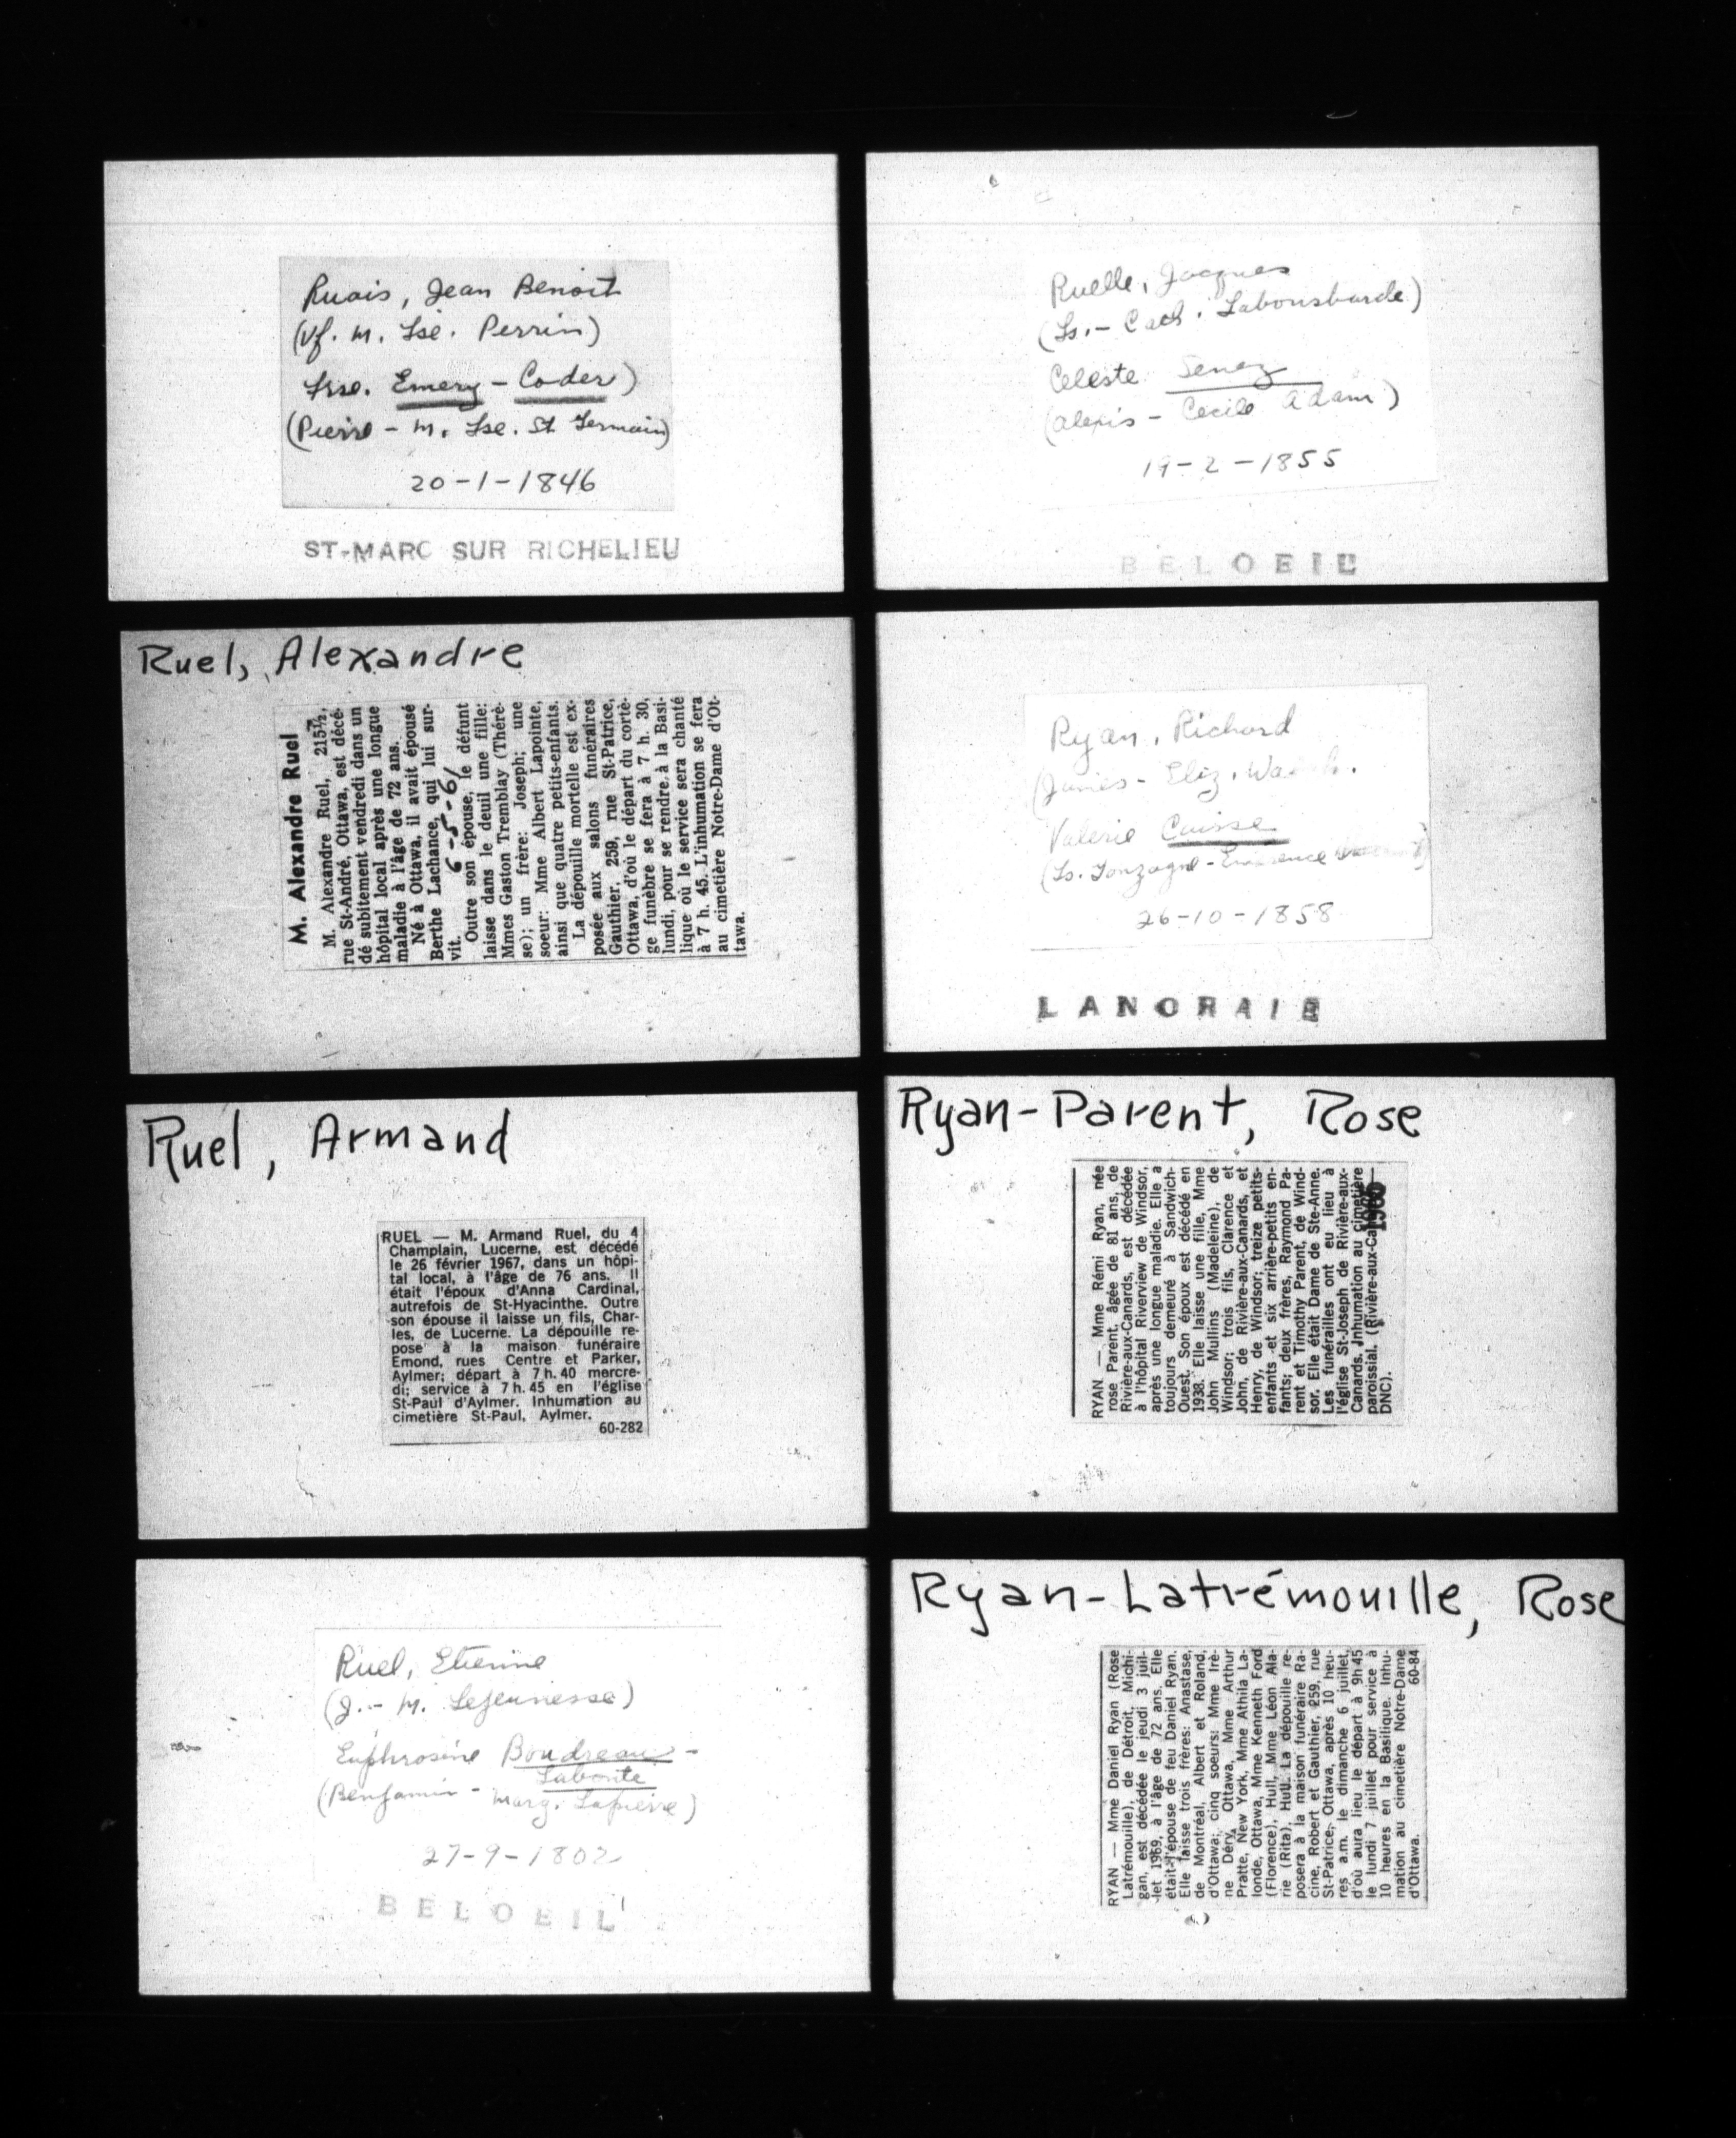 Ruais, Jean Benoit
(Vf. M. Lse. Perrin)
Frse. Emery - Coder)
(Pierre - M. Lse. St Germain)
20-1-1846
ST-MARC SUR RICHELIEU
Ruel, Alexandre
M. Alexandre Ruel
M. Alexandre Ruel, 215½,
rue St-André, Ottawa, est décé-
dé subitement vendredi dans un
hôpital local après une longue
maladie à l'âge de 72 ans.
Né à Ottawa, il avait épousé
Berthe Lachance, qui lui sur-
vit. 6-5-61
Outre son épouse, le défunt
laisse dans le deuil une fille:
Mmes Gaston Tremblay (Thérè-
se); un frère: Joseph; une
soeur: Mme Albert Lapointe,
ainsi que quatre petits-enfants.
La dépouille mortelle est ex-
posée aux salons funéraires
Gauthier, 259, rue St-Patrice,
Ottawa, d'où le départ du cortè-
ge funèbre se fera à 7 h. 30,
lundi, pour se rendre à la Basi-
lique où le service sera chanté
à 7 h. 45. L'inhumation se fera
au cimetière Notre-Dame d'Ot-
tawa.
Ruel, Armand
RUEL — M. Armand Ruel, du 4
Champlain, Lucerne, est décédé
le 26 février 1967, dans un hôpi-
tal local, à l'âge de 76 ans. Il
était l'époux d'Anna Cardinal,
autrefois de St-Hyacinthe. Outre
son épouse il laisse un fils, Char-
les, de Lucerne. La dépouille re-
pose à la maison funéraire
Emond, rues Centre et Parker,
Aylmer; départ à 7 h. 40 mercre-
di; service à 7 h. 45 en l'église
St-Paul d'Aylmer. Inhumation au
cimetière St-Paul, Aylmer.
60-282
Ruel, Etienne
(J. - M. Lejeunesse)
Euphrosine Boudreau -
Labonte
(Benjamin - Marg. Lapierre)
27-9-1802
BELOEIL
Ruelle, Jacques
(Ls. - Cath. Labonsbarde)
Celeste Senez
(Alexis - Cecile Adam)
19-2-1855
BELOEIL
Ryan, Richard
(James - Eliz.
Valerie Caisse
(Ls. Gonzague -
26-10-1858
LANORAIE
Ryan-Parent, Rose
RYAN — Mme Rémi Ryan, née
rose Parent, âgée de 81 ans, de
Rivière-aux-Canards, est décédée
à l'hôpital Riverview de Windsor,
après une longue maladie. Elle a
toujours demeuré à Sandwich-
Ouest. Son époux est décédé en
1938. Elle laisse une fille, Mme
John Mullins (Madeleine), de
Windsor; trois fils, Clarence et
John, de Rivière-aux-Canards, et
Henry, de Windsor; treize petits-
enfants et six arrière-petits en-
fants; deux frères, Raymond Pa-
rent et Timothy Parent, de Wind-
sor. Elle était Dame de Ste-Anne.
Les funérailles ont eu lieu à
l'église St-Joseph de Rivière-aux-
Canards. Inhumation au cimetière
paroissial. (Rivière-aux-Ca
DNC).
Ryan-Latrémouille, Rose
RYAN — Mme Daniel Ryan (Rose
Latrémouille), de Détroit, Michi-
gan, est décédée le jeudi 3 juil-
let 1969, à l'âge de 72 ans. Elle
était l'épouse de feu Daniel Ryan.
Elle laisse trois frères: Anastase,
de Montréal, Albert et Roland,
d'Ottawa; cinq soeurs: Mme Irè-
ne Déry, Ottawa, Mme Arthur
Pratte, New York, Mme Athila La-
londe, Ottawa, Mme Kenneth Ford
(Florence), Hull, Mme Léon Ala-
rie (Rita), Hull. La dépouille re-
posera à la maison funéraire Ra-
cine, Robert et Gauthier, 259, rue
St-Patrice, Ottawa, après 10 heu-
res a.m. le dimanche 6 juillet,
d'où aura lieu le départ à 9h 45
le lundi 7 juillet pour service à
10 heures en la Basilique. Inhu-
mation au cimetière Notre-Dame
d'Ottawa. 60-84